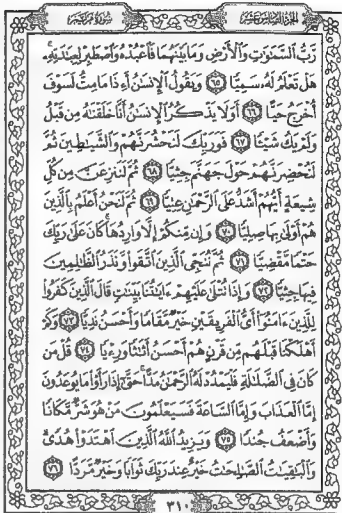 الجزء السادس عشر سورة مريم
رَّبُّ ٱلسَّمَٰوَٰتِ وَٱلْأَرْضِ وَمَا بَيْنَهُمَا فَٱعْبُدْهُ وَٱصْطَبِرْ لِعِبَٰدَتِهِۦ
هَلْ تَعْلَمُ لَهُۥ سَمِيًّا ٦٥ وَيَقُولُ ٱلْإِنسَٰنُ أَءِذَا مَا مِتُّ لَسَوْفَ
أُخْرَجُ حَيًّا ٦٦ أَوَلَا يَذْكُرُ ٱلْإِنسَٰنُ أَنَّا خَلَقْنَٰهُ مِن قَبْلُ
وَلَمْ يَكُ شَيْـًٔا ٦٧ فَوَرَبِّكَ لَنَحْشُرَنَّهُمْ وَٱلشَّيَٰطِينَ ثُمَّ
لَنُحْضِرَنَّهُمْ حَوْلَ جَهَنَّمَ جِثِيًّا ٦٨ ثُمَّ لَنَنزِعَنَّ مِن كُلِّ
شِيعَةٍ أَيُّهُمْ أَشَدُّ عَلَى ٱلرَّحْمَٰنِ عِتِيًّا ٦٩ ثُمَّ لَنَحْنُ أَعْلَمُ بِٱلَّذِينَ
هُمْ أَوْلَىٰ بِهَا صِلِيًّا ٧٠ وَإِن مِّنكُمْ إِلَّا وَارِدُهَا كَانَ عَلَىٰ رَبِّكَ
حَتْمًا مَّقْضِيًّا ٧١ ثُمَّ نُنَجِّى ٱلَّذِينَ ٱتَّقَوا۟ وَّنَذَرُ ٱلظَّٰلِمِينَ
فِيهَا جِثِيًّا ٧٢ وَإِذَا تُتْلَىٰ عَلَيْهِمْ ءَايَٰتُنَا بَيِّنَٰتٍ قَالَ ٱلَّذِينَ كَفَرُوا۟
لِلَّذِينَ ءَامَنُوٓا۟ أَىُّ ٱلْفَرِيقَيْنِ خَيْرٌ مَّقَامًا وَأَحْسَنُ نَدِيًّا ٧٣ وَكَمْ
أَهْلَكْنَا قَبْلَهُم مِّن قَرْنٍ هُمْ أَحْسَنُ أَثَٰثًا وَرِءْيًا ٧٤ قُلْ مَن
كَانَ فِى ٱلضَّلَٰلَةِ فَلْيَمْدُدْ لَهُ ٱلرَّحْمَٰنُ مَدًّا حَتَّىٰٓ إِذَا رَأَوْا۟ مَا يُوعَدُونَ
إِمَّا ٱلْعَذَابَ وَإِمَّا ٱلسَّاعَةَ فَسَيَعْلَمُونَ مَنْ هُوَ شَرٌّ مَّكَانًا
وَأَضْعَفُ جُندًا ٧٥ وَيَزِيدُ ٱللَّهُ ٱلَّذِينَ ٱهْتَدَوْا۟ هُدًى
وَٱلْبَٰقِيَٰتُ ٱلصَّٰلِحَٰتُ خَيْرٌ عِندَ رَبِّكَ ثَوَابًا وَخَيْرٌ مَّرَدًّا ٧٦
٣١٠